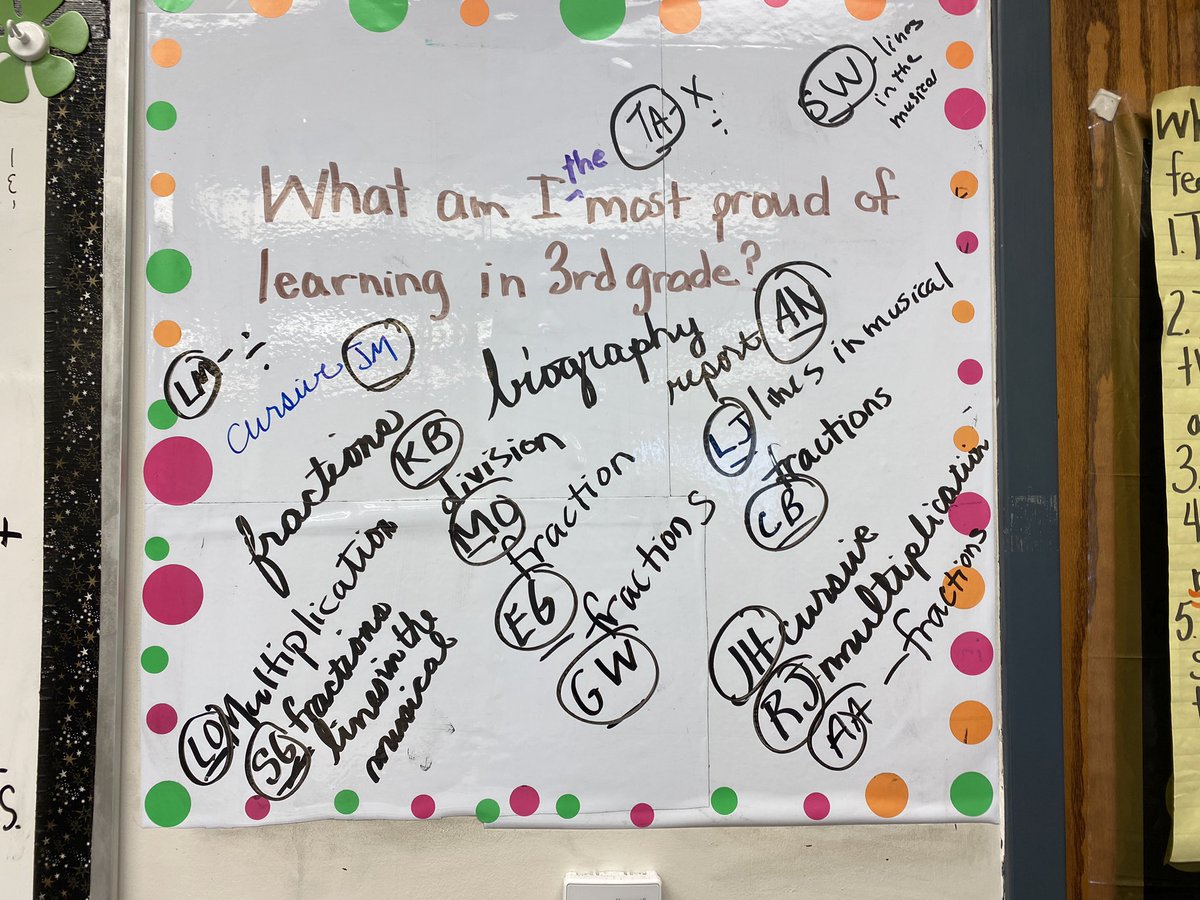 SW - lines
in the
musical
TA - X
÷
the
What am I ^ most proud of
learning in 3rd grade?
LM - ÷
cursive JM
biography
report AN
LJ lines in musical
fractions
KB
division
MO
fraction
EG
fractions
GW
fractions
CB
Multiplication
LO
SG fractions
lines in the
musical
JH cursive
RJ multiplication
AA - fractions
Wh
fe
1. T
2.
t
a
3.
4
5.
S.